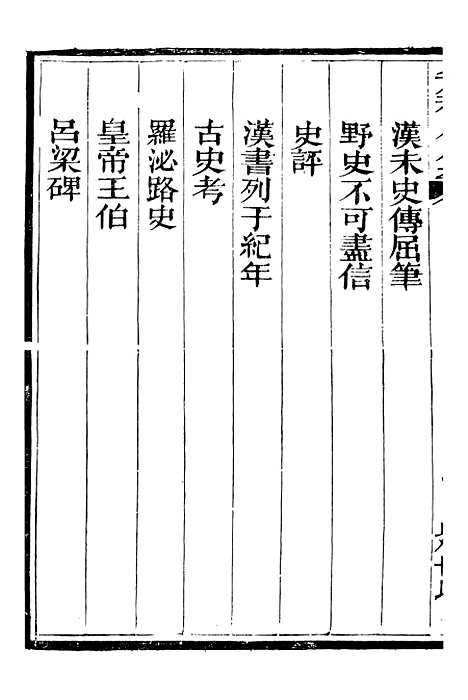 漢末史傳屈筆
野史不可盡信
史評
漢書列于紀年
古史考
羅泌路史
皇帝王伯
呂梁碑